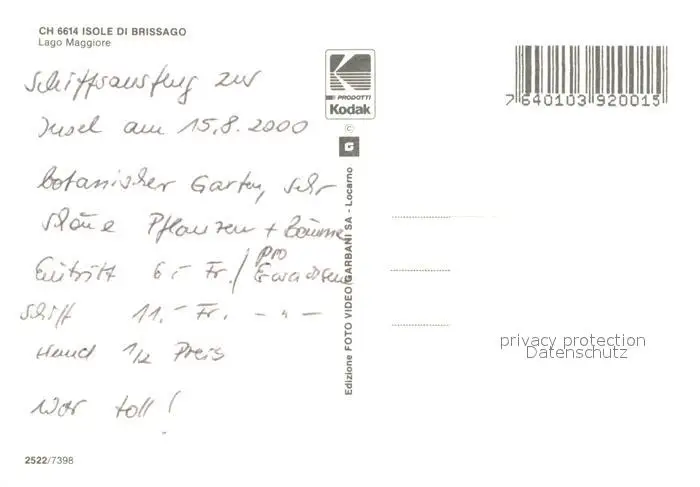 CH 6614 ISOLE DI BRISSAGO
Lago Maggiore
Schiffsausflug zur
Insel am 15.8.2000
botanischer Garten, sehr
schöne Pflanzen + Bäume
Eintritt 6.- Fr./pro Erwachsener
Schiff 11.- Fr. - " -
Hund 1/2 Preis
War toll!
2522/7398
PRODOTTI
Kodak
©
G
Edizione FOTO VIDEO GARBANI SA - Locarno
7 640103 920015
privacy protection
Datenschutz